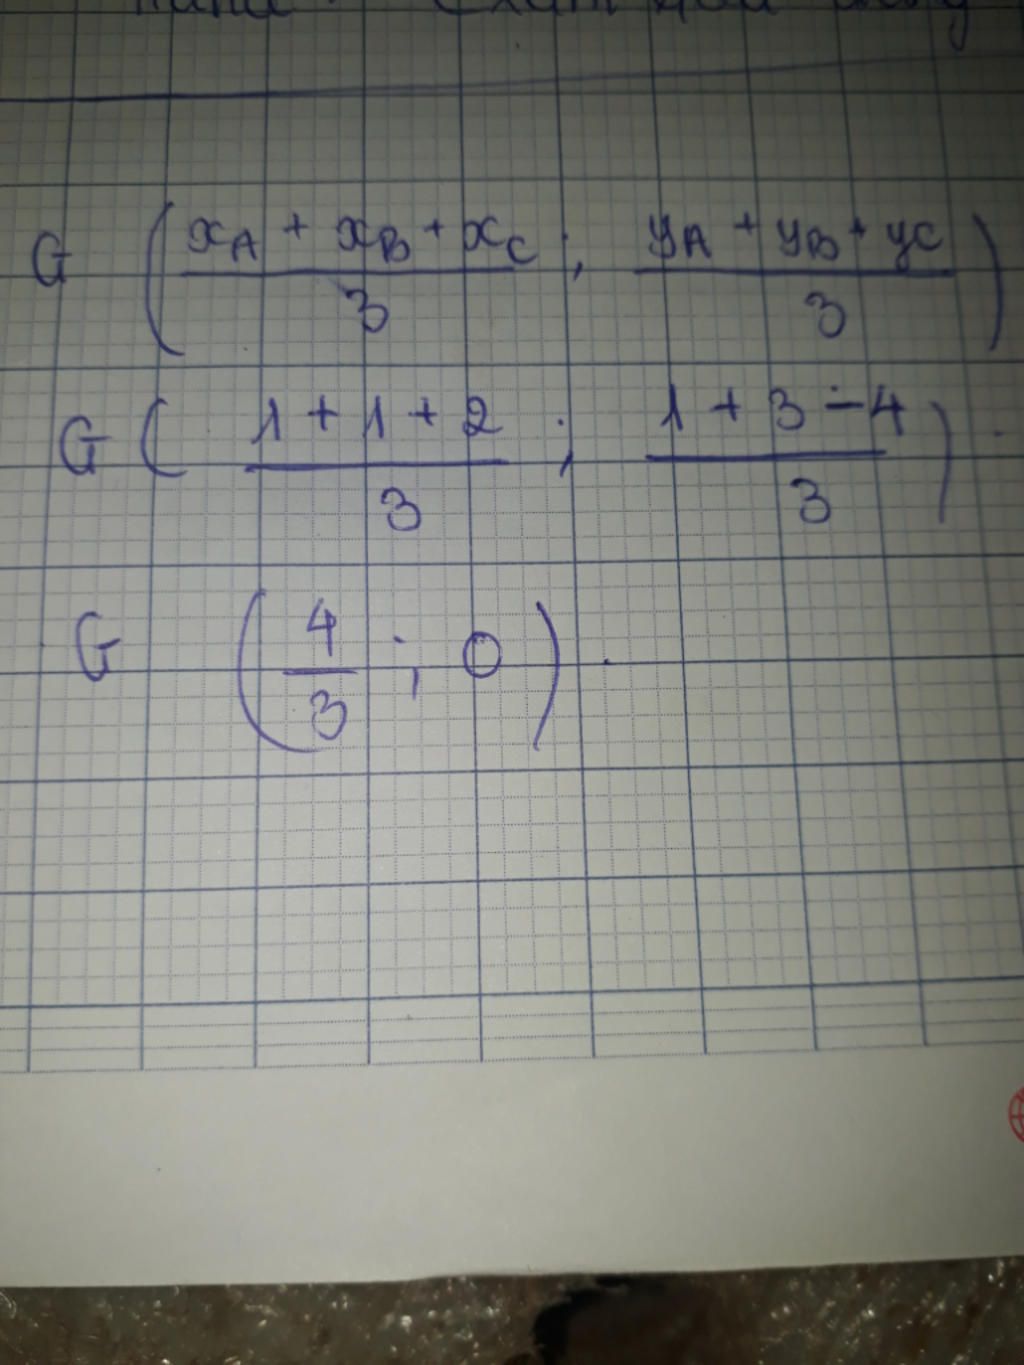 G ( (xA + xB + xC)/3 ; (yA + yB + yC)/3 )
G ( (1 + 1 + 2)/3 ; (1 + 3 - 4)/3 )
G ( 4/3 ; 0 )